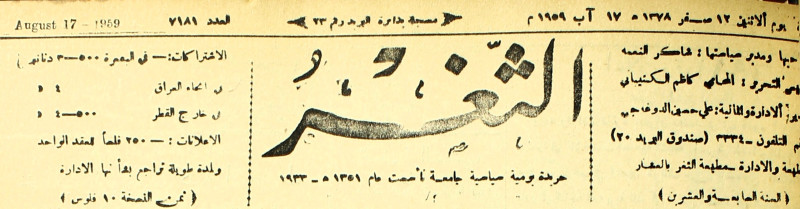 يوم الاثنين ١٢ صفر ١٣٧٨ ه ١٧ آب ١٩٥٩ م
مسجلة بدائرة البريد رقم ٢٣
العدد ٧١٨١
August 17 - 1959
حبها ومدير سياستها : شاكر النعمه
التحرير : المحامي كاظم
الادارة والمالية : علي حسين
التلفون ـ ٣٣٣٤ (صندوق البريد ٢٠)
والادارة ـ مطبعة الثغر بالعشار
( السنة السابعة والعشرين )
الثغر
جريدة يومية سياسية جامعة تأسست عام ١٣٥١ ه ـ ١٩٣٣
الاشتراكات : — في البصرة ٥٠٠—٣ دنانير
في انحاء العراق ٤ د
في خارج القطر ٥٠٠—٤ د
الاعلانات : — ٢٥٠ فلساً للعقد الواحد
ولمدة طويلة تراجع بشأنها الادارة
( ثمن النسخة ١٠ فلوس )